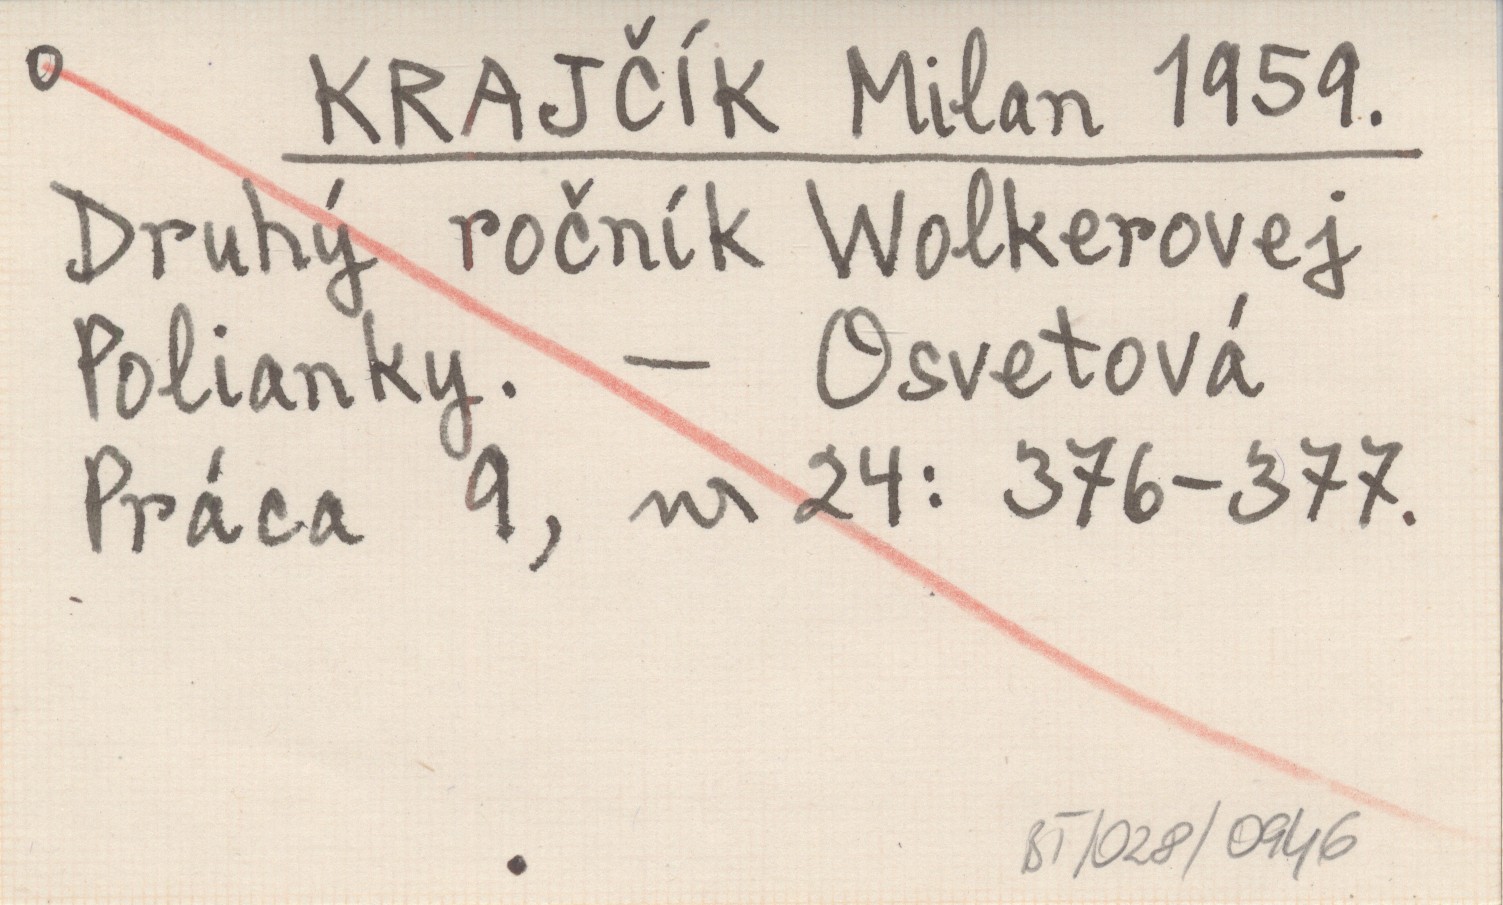 o KRAJČÍK Milan 1959.
Druhý ročník Wolkerovej
Polianky. — Osvetová
Práca 9, nr 24: 376-377.
BT/028/0946